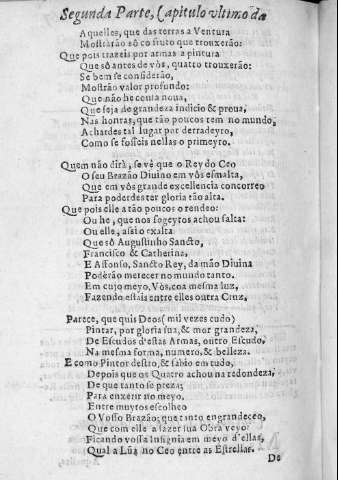 Segunda Parte, Capitulo vltimo da
Aquelles, que das terras a Ventura
Mostrarão só co fruto que trouxerão:
Que pois trazeis por armas a pintura
Que só antes de vós, quatro trouxerão:
Se bem se considerão,
Mostrão valor profundo:
Que não he cousa noua,
Que seja de grandeza indicio & proua,
Nas honras, que tão poucos tem no mundo,
Achardes tal lugar por derradeyro,
Como se fosseis nellas o primeyro.
Quem não dirà, se vè que o Rey do Ceo
O seu Brazão Diuino em vòs esmalta,
Que em vòs grande excellencia concorreo
Para poderdes ter gloria tão alta.
Que pois elle a tão poucos o rendeo:
Ou he, que nos sogeytos achou falta:
Ou elle, assi o exalta
Que só Augustinho Sancto,
Francisco & Catherina,
E Afonso, Sancto Rey, da mão Diuina
Poderão merecer no mundo tanto.
Em cujo meyo, Vòs, coa mesma luz,
Fazendo estais entre elles outra Cruz,
Parece, que quis Deos (mil vezes cudo)
Pintar, por gloria sua, & mor grandeza,
De Escudos d'estas Armas, outro Escudo,
Na mesma forma, numero, & belleza.
E como Pintor destro, & sabio em tudo,
Depois que os Quatro achou na redondeza,
De que tanto se preza;
Para enxerir no meyo,
Entre muytos escolheo
O Vosso Brazão; que tanto engrandeceo,
Que com elle a fazer sua Obra veyo:
Ficando vossa Insignia em meyo d'ellas,
Qual a Lũa no Ceo entre as Estrellas.
De